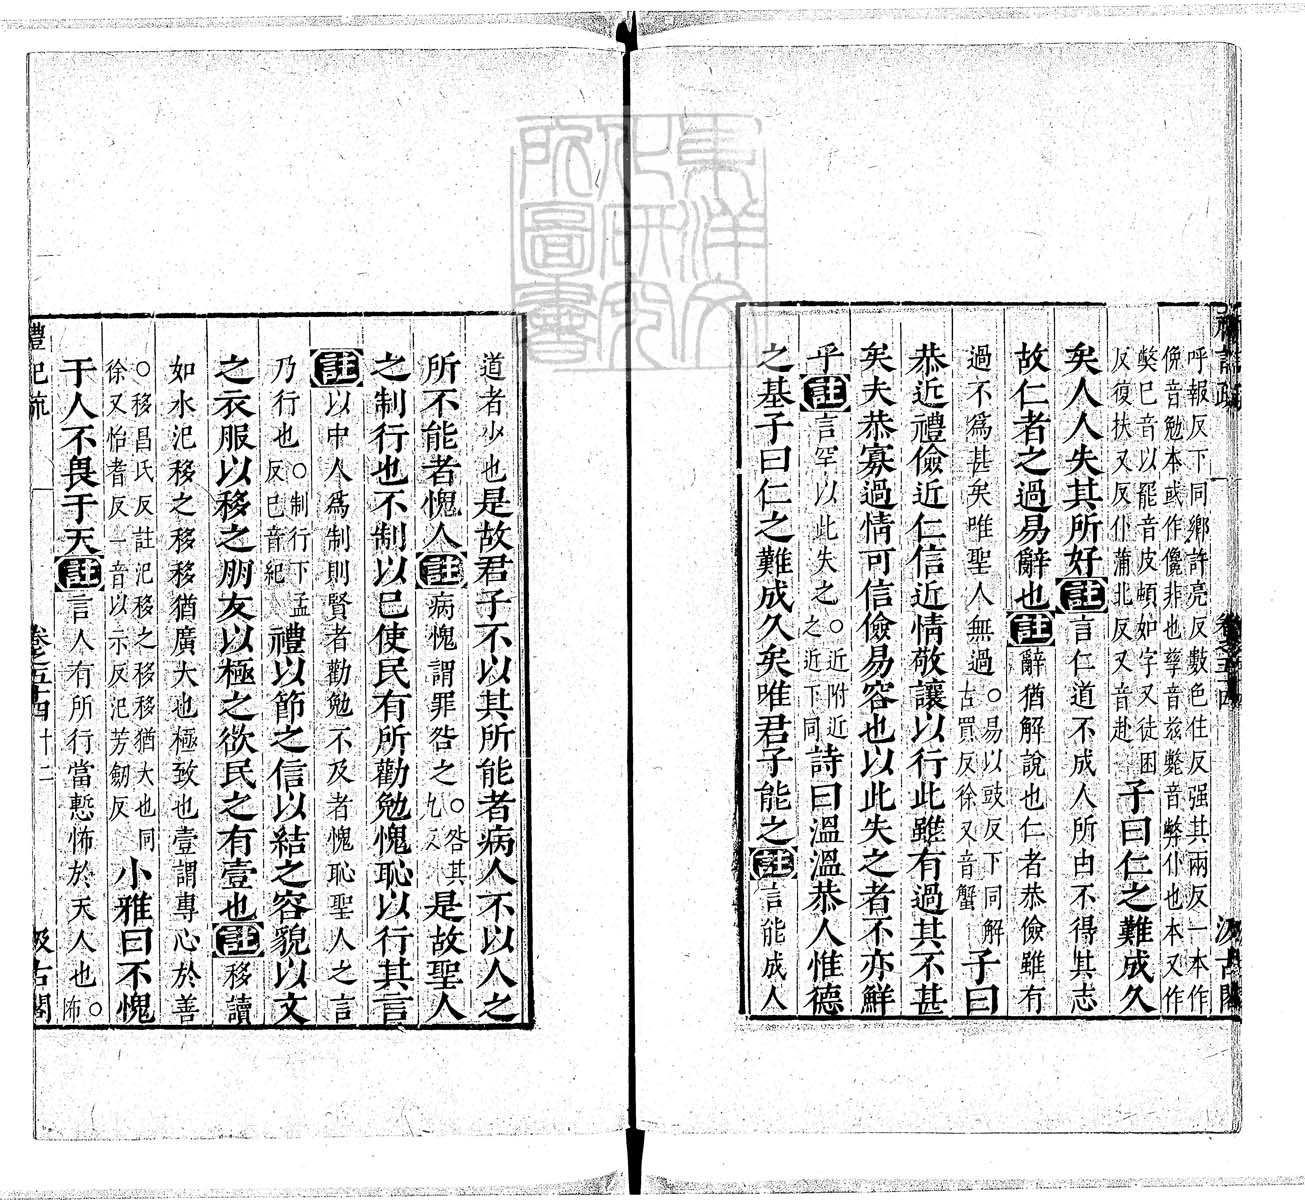 禮記疏
卷之五十四
汲古閣
呼報反下同鄉許亮反數色住反强其兩反一本作
俛音勉本或作僶非也孳音兹斃音弊仆也本又作
獘巳音以罷音皮頓如字又徒困
反復扶又反仆蒲北反又音赴
子曰仁之難成久
矣人人失其所好註言仁道不成人所由不得其志
故仁者之過易辭也註辭猶解說也仁者恭儉雖有
過不爲甚矣唯聖人無過○易以豉反下同解
古買反徐又音蟹
子曰
恭近禮儉近仁信近情敬讓以行此雖有過其不甚
矣夫恭寡過情可信儉易容也以此失之者不亦鮮
乎註言罕以此失之○近附近
之近下同
詩曰溫溫恭人惟德
之基子曰仁之難成久矣唯君子能之註言能成人
道者少也是故君子不以其所能者病人不以人之
所不能者愧人註病愧謂罪咎之○咎其
九反
是故聖人
之制行也不制以已使民有所勸勉愧恥以行其言
註以中人爲制則賢者勸勉不及者愧恥聖人之言
乃行也○制行下孟
反已音紀
禮以節之信以結之容貌以文
之衣服以移之朋友以極之欲民之有壹也註移讀
如水汜移之移移猶廣大也極致也壹謂專心於善
○移昌氏反註汜移之移移猶大也同
徐又怡者反一音以示反汜芳劒反
小雅曰不愧
于人不畏于天註言人有所行當慙怖於天人也○
怖
禮記疏
卷之五十四
十二
汲古閣
東洋文化研究所圖書